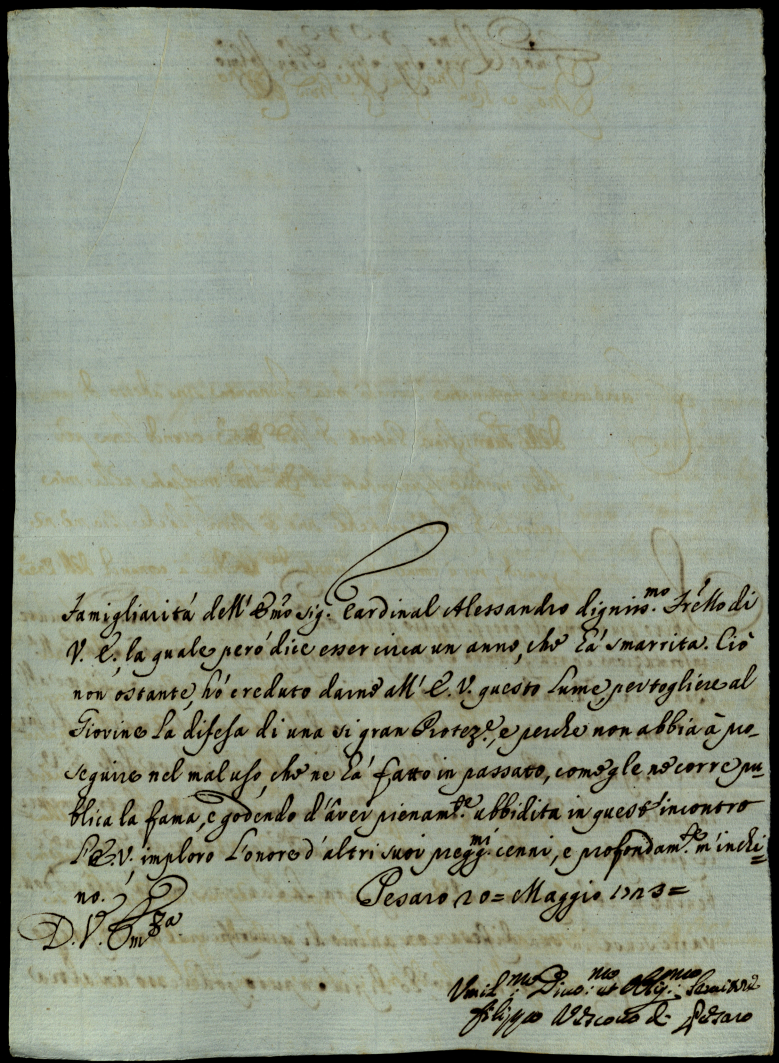 Famigliaritá dell' Emo sig.r Cardinal Alessandro digniss.mo Frello di
V. E., la quale peró dice esser circa un anno, che l'á smarrita. Ció
non ostante, hó creduto darne all' E. V. questo lume per togliere al
Giovine la difesa di una si gran Protez.e, e perche non abbia á pro-
seguire nel mal uso, che ne há fatto in passato, come gle ne corre pu-
blica la fama, e godendo d'áver pienam.te ubbidita in quest' incontro
l'E. V., imploro l'onore d'altri suoi pregg.mi cenni, e profondam.te m'inchi=
no. Pesaro 20= Maggio 1723=
D. V. Em.za
Umil.mo Divo.mo et Obbg.mo Servitore
filippo Vescovo di Pesaro